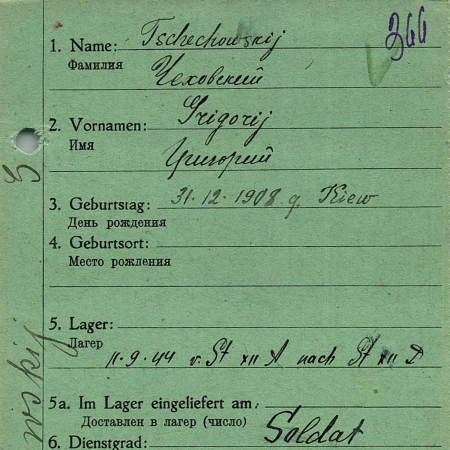 366
1. Name: Tschechowskij
Фамилия Чеховский
2. Vornamen: Grigorij
Имя Григорий
3. Geburtstag: 31.12.1908 g. Kiew
День рождения
4. Geburtsort:
Место рождения
5. Lager:
Лагер 11.9.44 v. St XII A nach St XII D
5a. Im Lager eingeliefert am
Доставлен в лагер (число)
6. Dienstgrad: Soldat